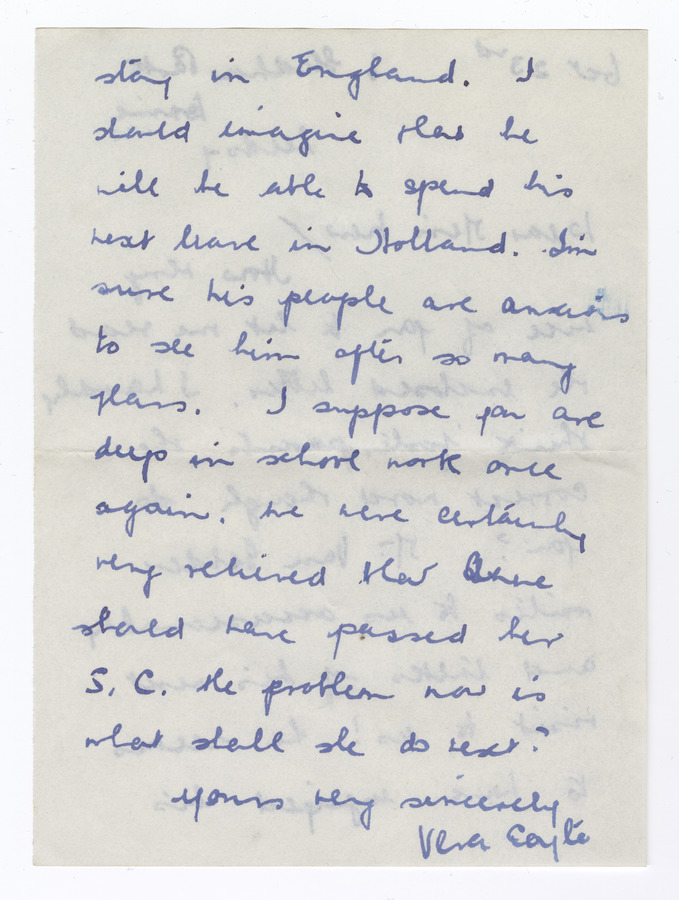 stay in England. I
should imagine that he
will be able to spend his
next leave in Holland. I'm
sure his people are anxious
to see him after so many
years. I suppose you are
deep in school work once
again. We were certainly
very relieved that Anne
should have passed her
S. C. The problem now is
what shall she do next?
Yours very sincerely
Vera